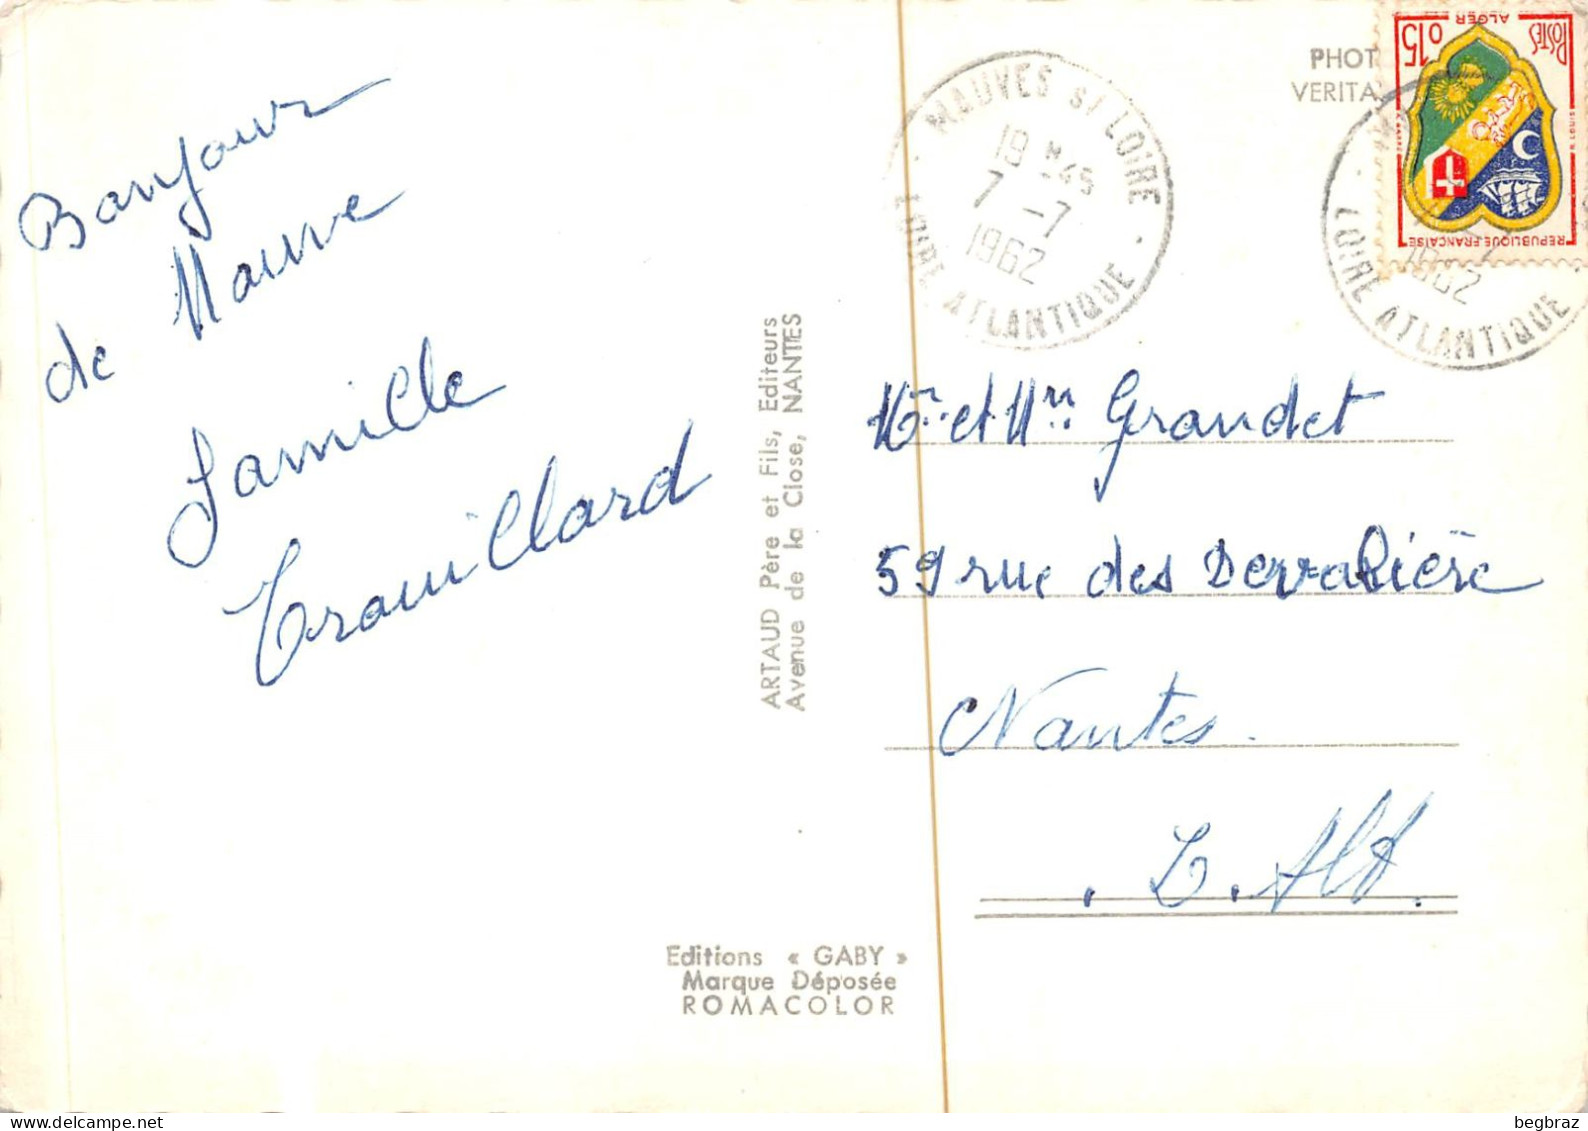 Bonjour
de Mauve
Famille
Trouillard
ARTAUD Père et Fils, Editeurs
Avenue de la Close, NANTES
Editions « GABY »
Marque Déposée
ROMACOLOR
PHOT
VERITA
MAUVES S/ LOIRE
19 H 45
7 - 7
1962
LOIRE ATLANTIQUE
POSTES
0,15
ALGER
REPUBLIQUE.FRANÇAISE
1962
LOIRE ATLANTIQUE
Mr et Mme Grandet
59 rue des Dervalière
Nantes.
L. Alt.
begbraz